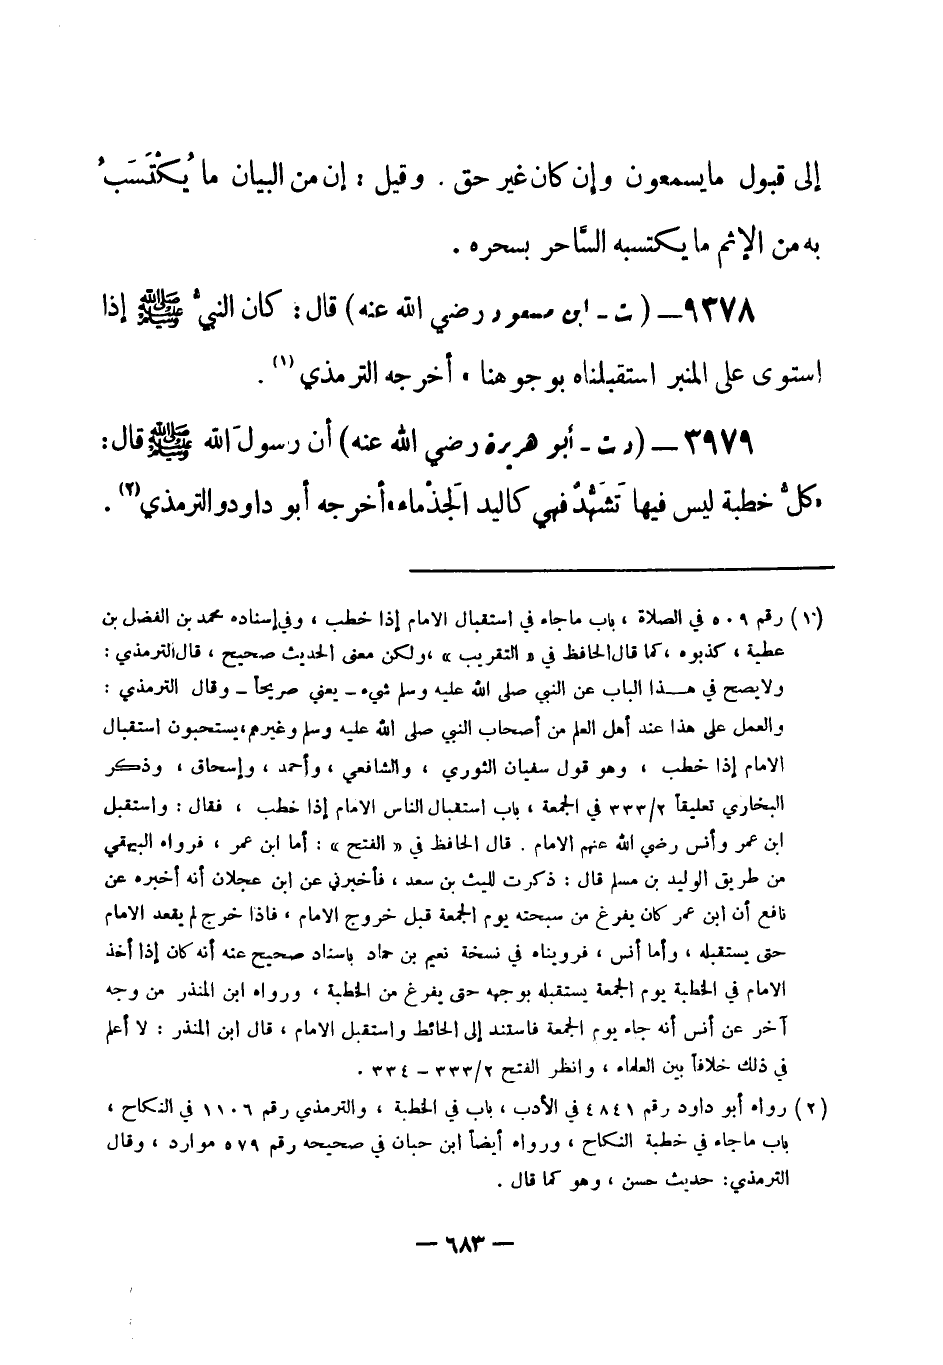 إلى قبول مايسمعون وإن كان غير حق . وقيل : إن من البيان ما يُكْتَسَبُ
به من الإثم ما يكتسبه السَّاحر بسحره .
٩٣٧٨ـ (ت ـ ابن مسعود رضي الله عنه) قال : كان النبيُّ ﷺ إذا
استوى على المنبر استقبلناه بوجوهنا » أخرجه الترمذي (١) .
٣٩٧٩ ـ (دت ـ أبو هريرة رضي الله عنه) أن رسولَ الله ﷺ قال :
«كلُّ خطبة ليس فيها تَشَهُّدٌ فهي كاليد الجَذْماء» أخرجه أبو داود والترمذي (٢) .
(١) رقم ٥٠٩ في الصلاة ، باب ماجاء في استقبال الامام إذا خطب ، وفي إسناده محمد بن الفضل بن
عطية ، كذبوه ، كما قال الحافظ في « التقريب » ، ولكن معنى الحديث صحيح ، قال الترمذي :
ولايصح في هــذا الباب عن النبي صلى الله عليه وسلم شيء ـ يعني صريحاً ـ وقال الترمذي :
والعمل على هذا عند أهل العلم من أصحاب النبي صلى الله عليه وسلم وغيرهم ، يستحبون استقبال
الامام إذا خطب ، وهو قول سفيان الثوري ، والشافعي ، وأحمد ، وإسحاق ، وذكر
البخاري تعليقاً ٣٣٣/٢ في الجمعة ، باب استقبال الناس الامام إذا خطب ، فقال : واستقبل
ابن عمر وأنس رضي الله عنهم الامام . قال الحافظ في « الفتح » : أما ابن عمر ، فرواه البيهقي
من طريق الوليد بن مسلم قال : ذكرت لليث بن سعد ، فأخبرني عن ابن عجلان أنه أخبره عن
نافع أن ابن عمر كان يفرغ من سبحته يوم الجمعة قبل خروج الامام ، فاذا خرج لم يقعد الامام
حتى يستقبله ، وأما أنس ، فرويناه في نسخة نعيم بن حماد باسناد صحيح عنه أنه كان إذا أخذ
الامام في الخطبة يوم الجمعة يستقبله بوجهه حتى يفرغ من الخطبة ، ورواه ابن المنذر من وجه
آخر عن أنس أنه جاء يوم الجمعة فاستند إلى الحائط واستقبل الامام ، قال ابن المنذر : لا أعلم
في ذلك خلافاً بين العلماء ، وانظر الفتح ٣٣٣/٢ ـ ٣٣٤ .
(٢) رواه أبو داود رقم ٤٨٤١ في الأدب ، باب في الخطبة ، والترمذي رقم ١١٠٦ في النكاح ،
باب ماجاء في خطبة النكاح ، ورواه أيضاً ابن حبان في صحيحه رقم ٥٧٩ موارد ، وقال
الترمذي : حديث حسن ، وهو كما قال .
— ٦٨٣ —